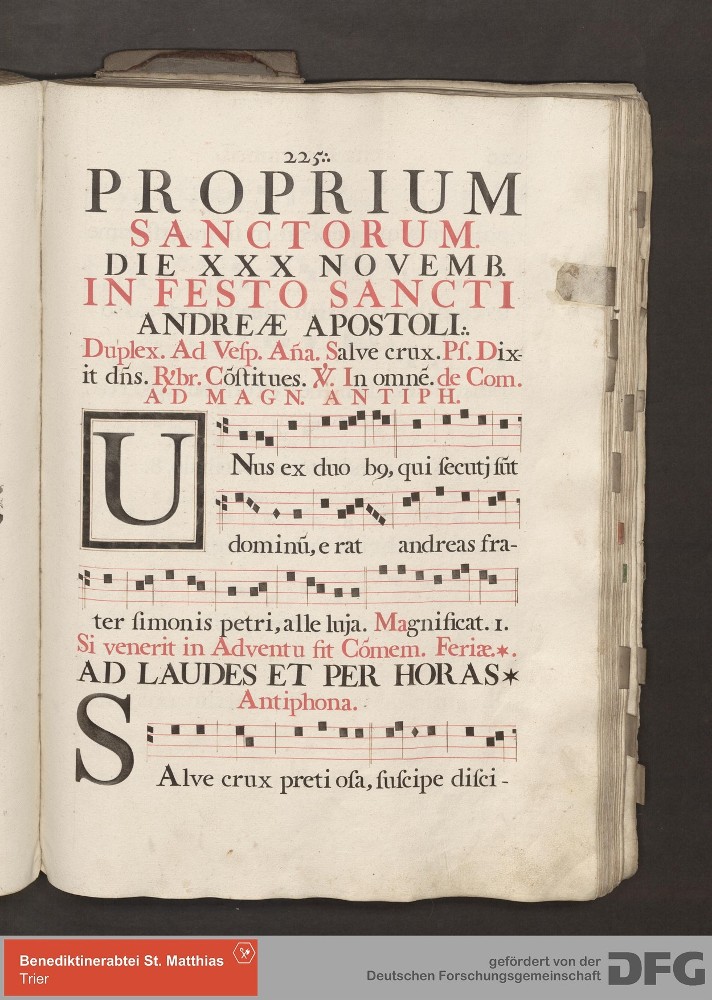 225.:.
PROPRIUM
SANCTORUM.
DIE XXX NOVEMB.
IN FESTO SANCTI
ANDREÆ APOSTOLI.:.
Duplex. Ad Veſp. Aña. Salve crux. Pſ. Dix-
it dñs. R̷br. Cõſtitues. V̷. In omnẽ. de Com.
AD MAGN. ANTIPH.
UNus ex duo b9, qui ſecutj ſũt
dominũ, e rat andreas fra-
ter ſimonis petri, alle luja. Magnificat. 1.
Si venerit in Adventu fit Cõmem. Feriæ.*.
AD LAUDES ET PER HORAS*
Antiphona.
SAlve crux preti oſa, ſuſcipe diſci-
Benediktinerabtei St. Matthias
Trier
gefördert von der
Deutschen Forschungsgemeinschaft
DFG